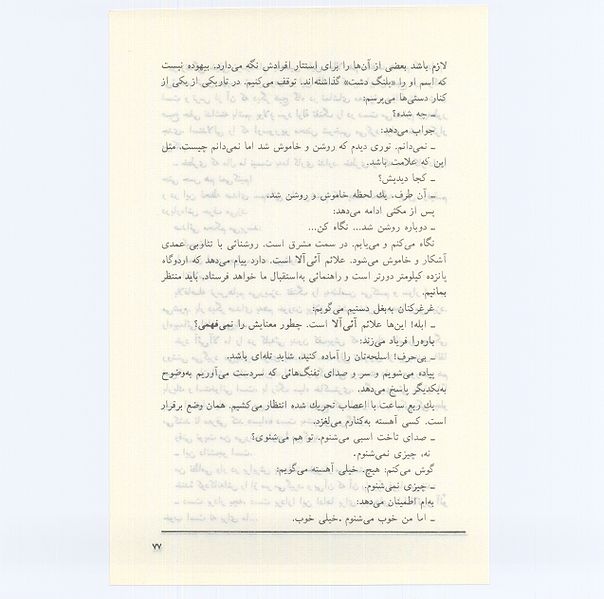 لازم باشد بعضی از آن‌ها را برای استتار افرادش نگه می‌دارد. بیهوده نیست
که اسم او را «پلنگ دشت» گذاشته‌اند. توقف می‌کنیم. در تاریکی از یکی از
کنار دستی‌ها می‌پرسم:
ـ چه شده؟
جواب می‌دهد:
ـ نمی‌دانم. نوری دیدم که روشن و خاموش شد اما نمی‌دانم چیست. مثل
این که علامت باشد.
ـ کجا دیدیش؟
ـ آن طرف. یك لحظه خاموش و روشن شد.
پس از مکثی ادامه می‌دهد:
ـ دوباره روشن شد... نگاه کن...
نگاه می‌کنم و می‌یابم. در سمت مشرق است. روشنائی با تناوبی عمدی
آشکار و خاموش می‌شود. علائم آئی‌آلا است. دارد پیام می‌دهد که اردوگاه
پانزده کیلومتر دورتر است و راهنمائی به‌استقبال ما خواهد فرستاد. باید منتظر
بمانیم.
غرغرکنان به‌بغل دستیم می‌گویم:
ـ ابله! این‌ها علائم آئی‌آلا است. چطور معنایش را نمی‌فهمی؟
یاره‌را فریاد می‌زند:
ـ بی‌حرف! اسلحه‌تان را آماده کنید. شاید تله‌ای باشد.
پیاده می‌شویم و سر و صدای تفنگ‌هائی که سردست می‌آوریم به‌وضوح
به‌یکدیگر پاسخ می‌دهد.
یك ربع ساعت با اعصاب تحریك شده انتظار می‌کشیم. همان وضع برقرار
است. کسی آهسته به‌کنارم می‌لغزد.
ـ صدای تاخت اسبی می‌شنوم. تو هم می‌شنوی؟
نه، چیزی نمی‌شنوم.
گوش می‌کنم: هیچ. خیلی آهسته می‌گویم:
ـ چیزی نمی‌شنوم.
به‌ام اطمینان می‌دهد:
ـ اما من خوب می‌شنوم .خیلی خوب.
۷۷